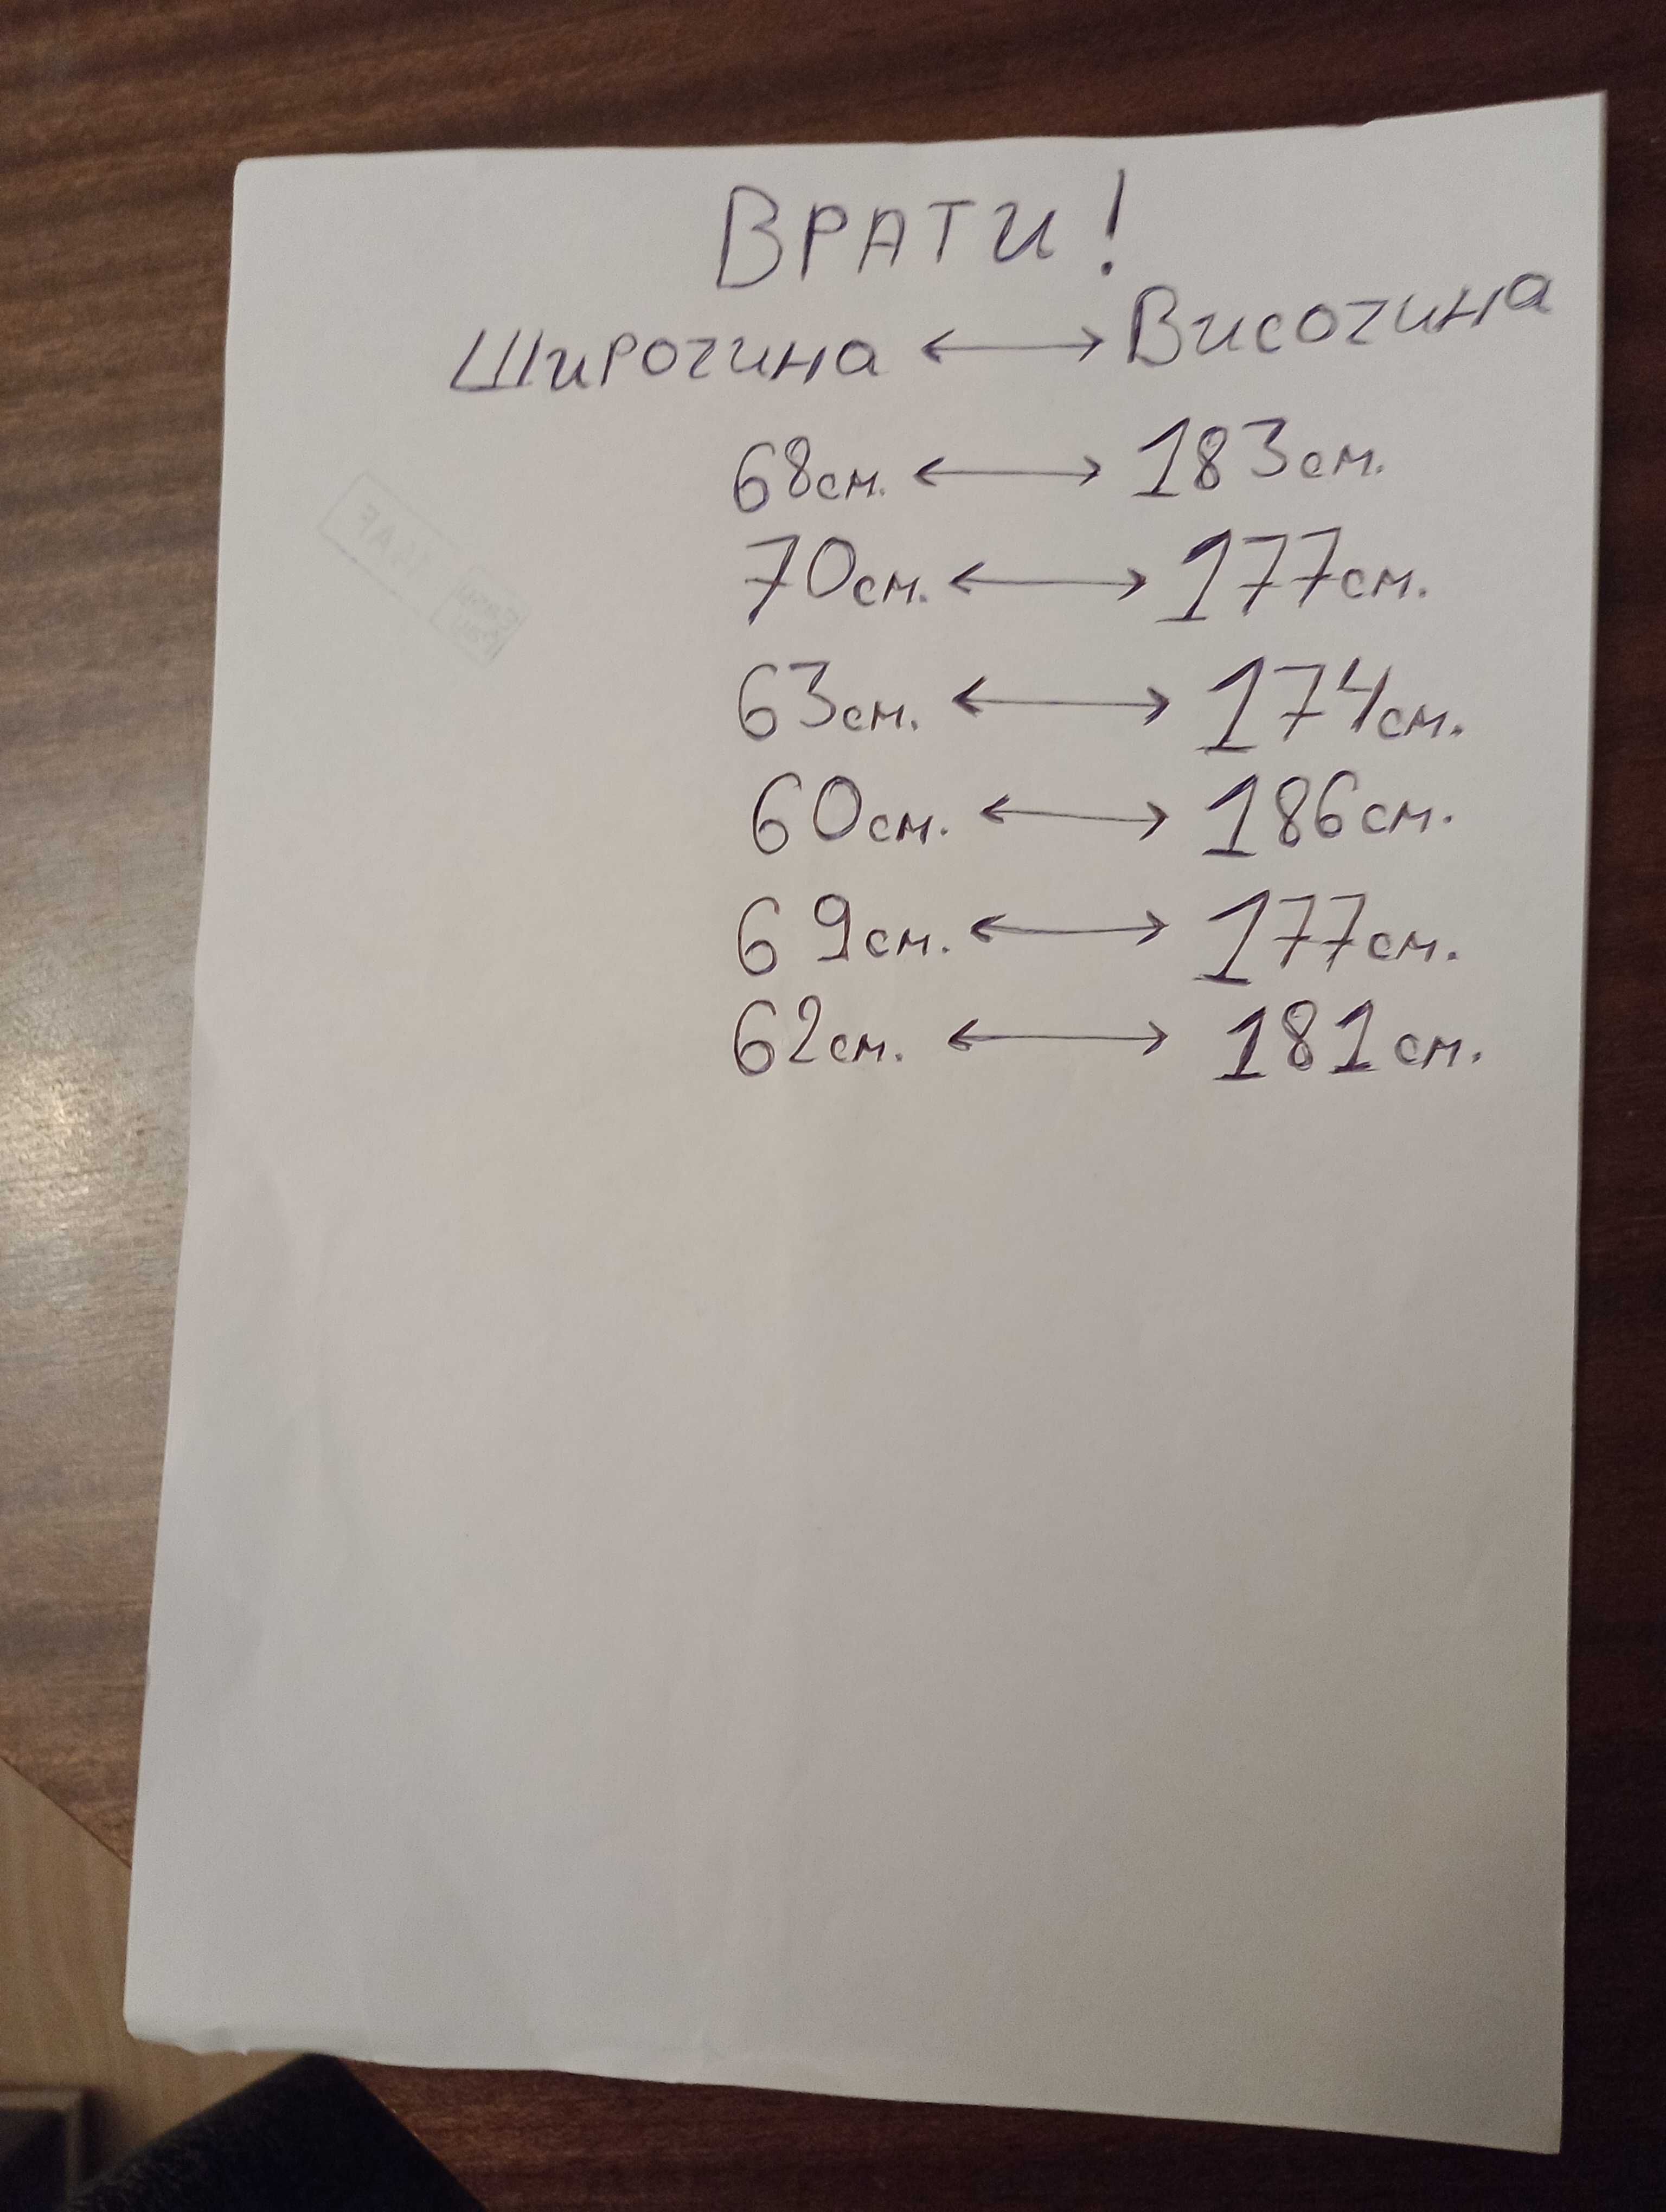 ВРАТИ!
Широчина ↔ Височина
68см. ↔ 183см.
70см. ↔ 177см.
63см. ↔ 174см.
60см. ↔ 186см.
69см. ↔ 177см.
62см. ↔ 181см.